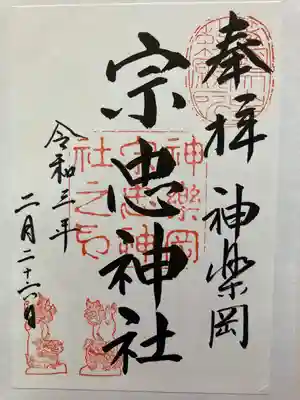 奉拝 神楽岡
宗忠神社
令和三年
二月二十六日
神樂岡
宗忠神
社之印